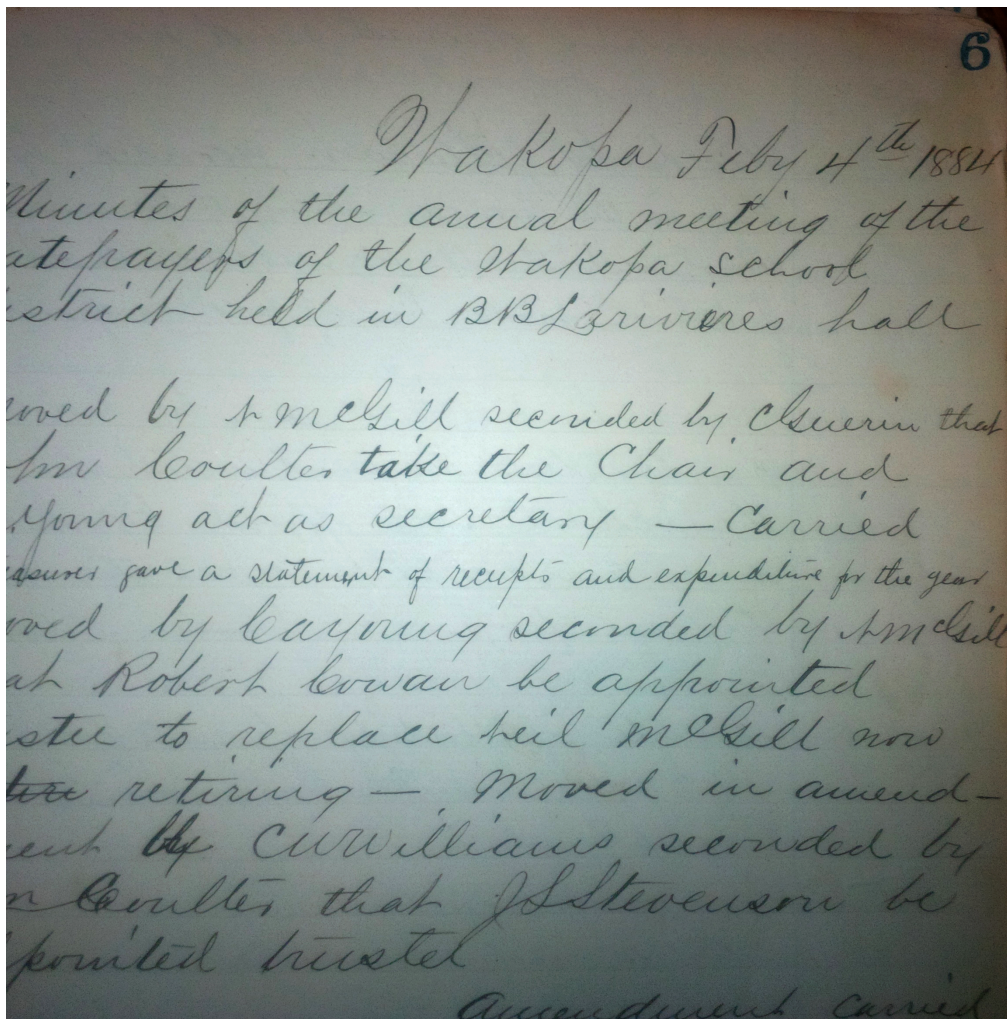 6
Wakopa Feby 4th 1884
Minutes of the annual meeting of the
atepayers of the Wakopa School
istrict held in BB Larivieres hall
oved by N McGill seconded by C Guerin that
Coulter take the Chair and
Young act as secretary — Carried
easurer gave a statement of receipts and expenditure for the year
oved by C A Young seconded by N McGill
at Robert Cowan be appointed
stee to replace Neil McGill now
retiring — Moved in amend-
ent by C W Williams seconded by
n Coulter that J S Stevenson be
ppointed trustee
Amendment Carried